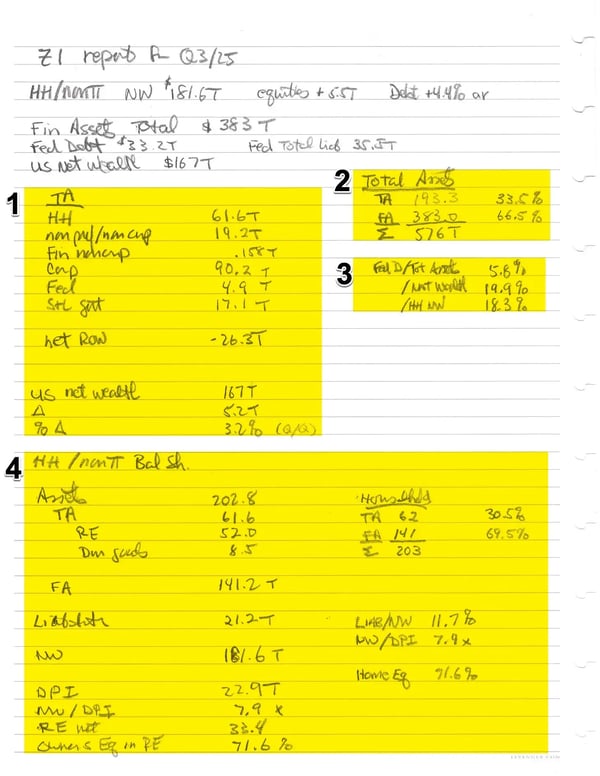 Z1 report for Q3/25
HH/nonπ NW $181.6T equities +5.5T Debt +4.4% ar
Fin Asset Total $383T
Fed Debt $33.2T Fed Total Liab 35.5T
US Net Wealth $167T
1
TA
HH 61.6T
non prof/noncorp 19.2T
Fin noncorp .158T
Corp 90.2T
Fed 4.9T
S+L govt 17.1T
net ROW -26.3T
US net wealth 167T
Δ 5.2T
% Δ 3.2% (Q/Q)
2 Total Assets
TA 193.3 33.5%
FA 383.0 66.5%
Σ 576T
3 Fed D/Tot Assets 5.8%
/Net Wealth 19.9%
/HH NW 18.3%
4 HH/nonπ Bal Sh.
Assets 202.8
TA 61.6
RE 52.0
Dur goods 8.5
FA 141.2T
Liabilities 21.2T
NW 181.6T
DPI 22.9T
NW/DPI 7.9x
RE net 33.4
Owners Eq in RE 71.6%
Household
TA 62 30.5%
FA 141 69.5%
Σ 203
LIAB/NW 11.7%
NW/DPI 7.9x
Home Eq 71.6%